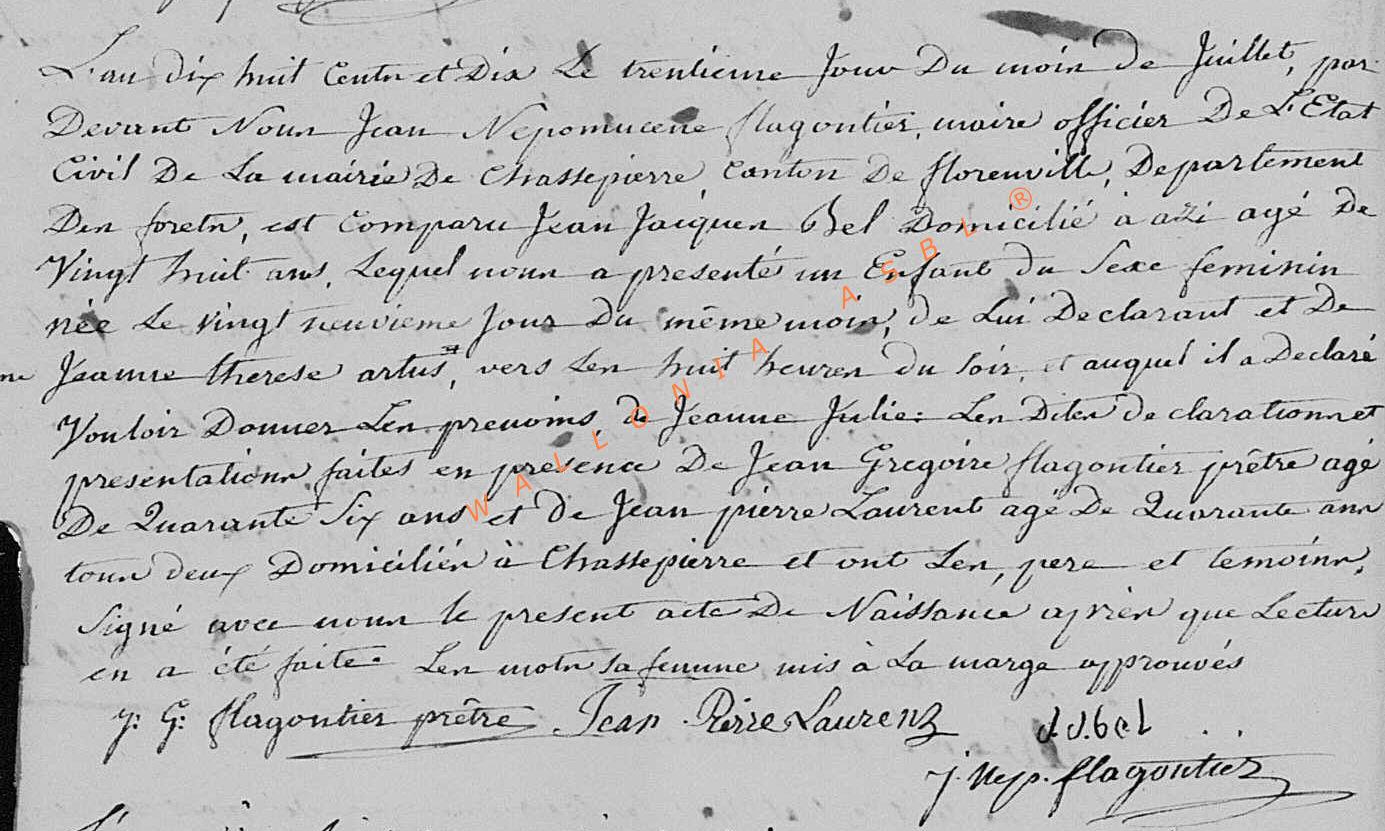 L'an dix huit Cents et Dix Le trentieme Jour Du mois de Juillet, par
Devant Nous Jean Nepomucene flagontier, maire officier De L'Etat
Civil De La mairie De Chassepierre, Canton De florenville, Departement
Des forets, est Comparu Jean Jacques Bel Domicilié à azi agé De
Vingt huit ans, Lequel nous a presenté un Enfant du Sexe feminin
née Le vingt neuvieme Jour Du même mois, de Lui Declarant et De
Jeanne therese artus, vers Les huit heures du soir, et auquel il a Declaré
Vouloir Donner Les prenoms de Jeanne Julie: Les Dites declarations et
presentations faites en presence De Jean Gregoire flagontier prêtre agé
De Quarante Six ans et de Jean pierre Laurent agé De Quarante ans
tous deux Domiciliés à Chassepierre et ont Les, pere et temoins,
signé avec nous le present acte De Naissance après que Lecture
en a été faite. Les mots sa femme mis à La marge approuvés
J: G: flagontier prêtre Jean Pierre Laurens J.J.bel
J. Nep. flagontier
WALLONIA ASBL ®